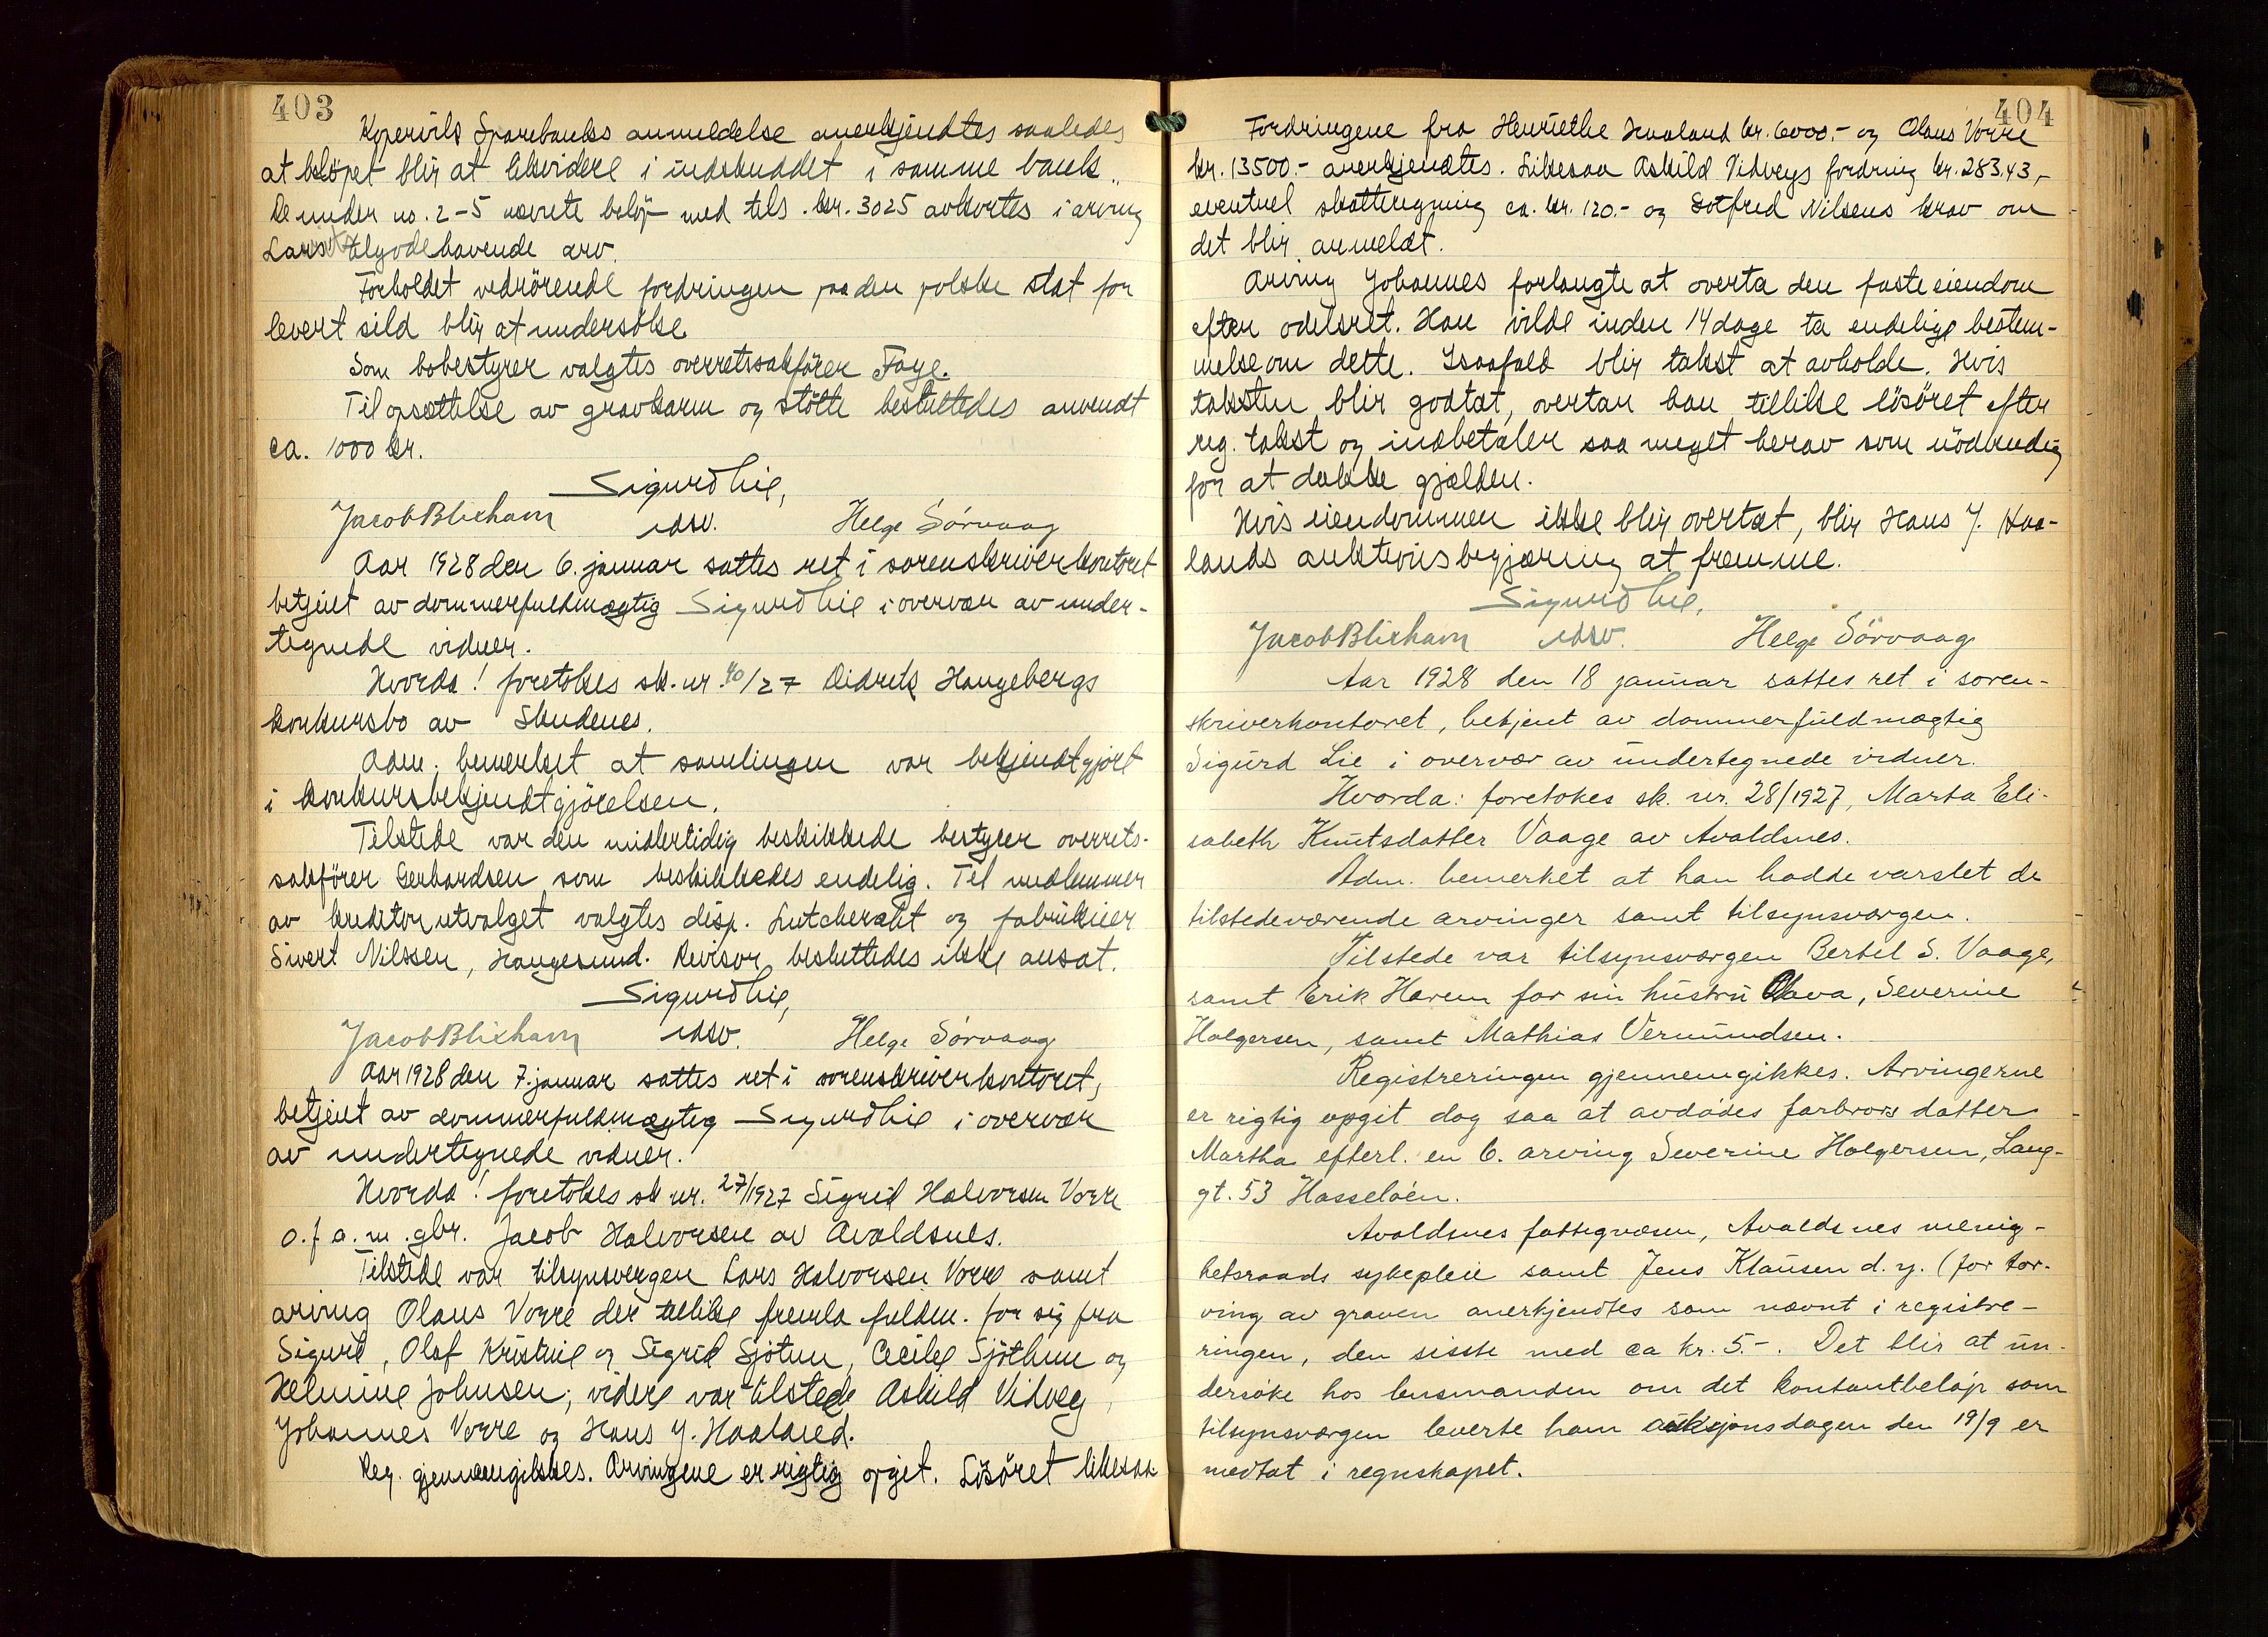 403
Kopervik Sparebanks anmeldelse anerkjendtes saaledes
at beløpet blir at likvidere i indskuddet i samme bank.
De under no. 2-5 nævnte beløp med tils. kr. 3025 avkortes i arving
Lars' tilgodehavende arv.
Forholdet vedrörende fordringen paa den polske stat for
levert sild blir at undersöke.
Som bobestyrer valgtes overretssakförer Faye.
Til opsættelse av gravkarm og stötte besluttedes anvendt
ca. 1000 kr.
Sigurd Lie,
Jacob Blixhavn edsv. Helge Sörvaag
Aar 1928 den 6. januar sattes ret i sorenskriverkontoret
betjent av dommerfuldmægtig Sigurd Lie i overvær av under-
tegnede vidner.
Hvorda! foretokes sk. nr. 40/27 Didrik Haugebergs
konkursbo av Skudenes.
Adm. bemerket at samlingen var bekjendtgjort
i konkursbekjendtgjörelsen.
Tilstede var den midlertidig beskikkede bestyrer overrets-
sakförer Gerhardsen som beskikkedes endelig. Til medlemmer
av kreditorutvalget valgtes disp. Lutcherath og fabrikeier
Sivert Nilssen, Haugesund. Revisor besluttedes ikke ansat.
Sigurd Lie,
Jacob Blixhavn edsv. Helge Sörvaag
Aar 1928 den 7. januar sattes ret i sorenskriverkontoret,
betjent av dommerfuldmægtig Sigurd Lie i overvær
av undertegnede vidner.
Hvorda! foretokes sk nr. 27/1927 Sigrid Halvorsen Vorre
o.f a.m. gbr. Jacob Halvorsen av Avaldsnes.
Tilstede var tilsynsvergen Lars Halvorsen Vorre samt
arving Olaus Vorre der tillike fremla fuldm. for sig fra
Sigurd, Olaf Kristine og Sigrid Sjötun, Cecilie Sjöthun og
Helmine Johnsen; videre var tilstede Askild Vidveg,
Johannes Vorre og Hans J. Haaland.
Reg. gjennemgikkes. Arvingene er rigtig opgit. Lösöret likesaa.
404
Fordringene fra Henriethe Haaland kr. 6000.- og Olaus Vorre
kr. 13500.- anerkjendtes. Likesaa Askild Vidvegs fordring kr. 283,43,-
eventuel skatteregning ca. kr. 120.- og Gotfred Nilsens krav om
det blir anmeldt.
Arving Johannes forlangte at overta den faste eiendom
efter odelsret. Han vilde inden 14 dage ta endelige bestem-
melse om dette. Isaafald blir takst at avholde. Hvis
taksten blir godtat, overtar han tillike lösöret efter
reg. takst og indbetaler saa meget herav som nödvendig
for at dække gjælden.
Hvis eiendommen ikke blir overtat, blir Hans J. Haa-
lands auktionsbegjæring at fremme.
Sigurd Lie,
Jacob Blixhavn edsv. Helge Sörvaag
Aar 1928 den 18 januar sattes ret i soren-
skriverkontoret, betjent av dommerfuldmægtig
Sigurd Lie i overvær av undertegnede vidner.
Hvorda: foretokes sk. nr. 28/1927, Marta Eli-
sabeth Knutsdatter Vaage av Avaldsnes.
Adm. bemerket at han hadde varslet de
tilstedeværende arvinger samt tilsynsværgen.
Tilstede var tilsynsværgen Bertel S. Vaage,
samt Erik Harem for sin hustru Olava, Severine
Holgersen, samt Mathias Vermundsen.
Registreringen gjennemgikkes. Arvingerne
er rigtig opgit dog saa at avdødes farbrors datter
Martha efterl. en 6. arving Severine Holgersen, Lang-
gt. 53 Hasseløen.
Avaldsnes fattigvæsen, Avaldsnes menig-
hetsraads sykepleie samt Jens Klausen d.y. (for tor-
ving av graven anerkjendtes som nævnt i registre-
ringen, den sisste med ca kr. 5.-. Det blir at un-
dersøke hos lensmanden om det kontantbeløp som
tilsynsværgen leverte ham auksjonsdagen den 19/9 er
medtat i regnskapet.